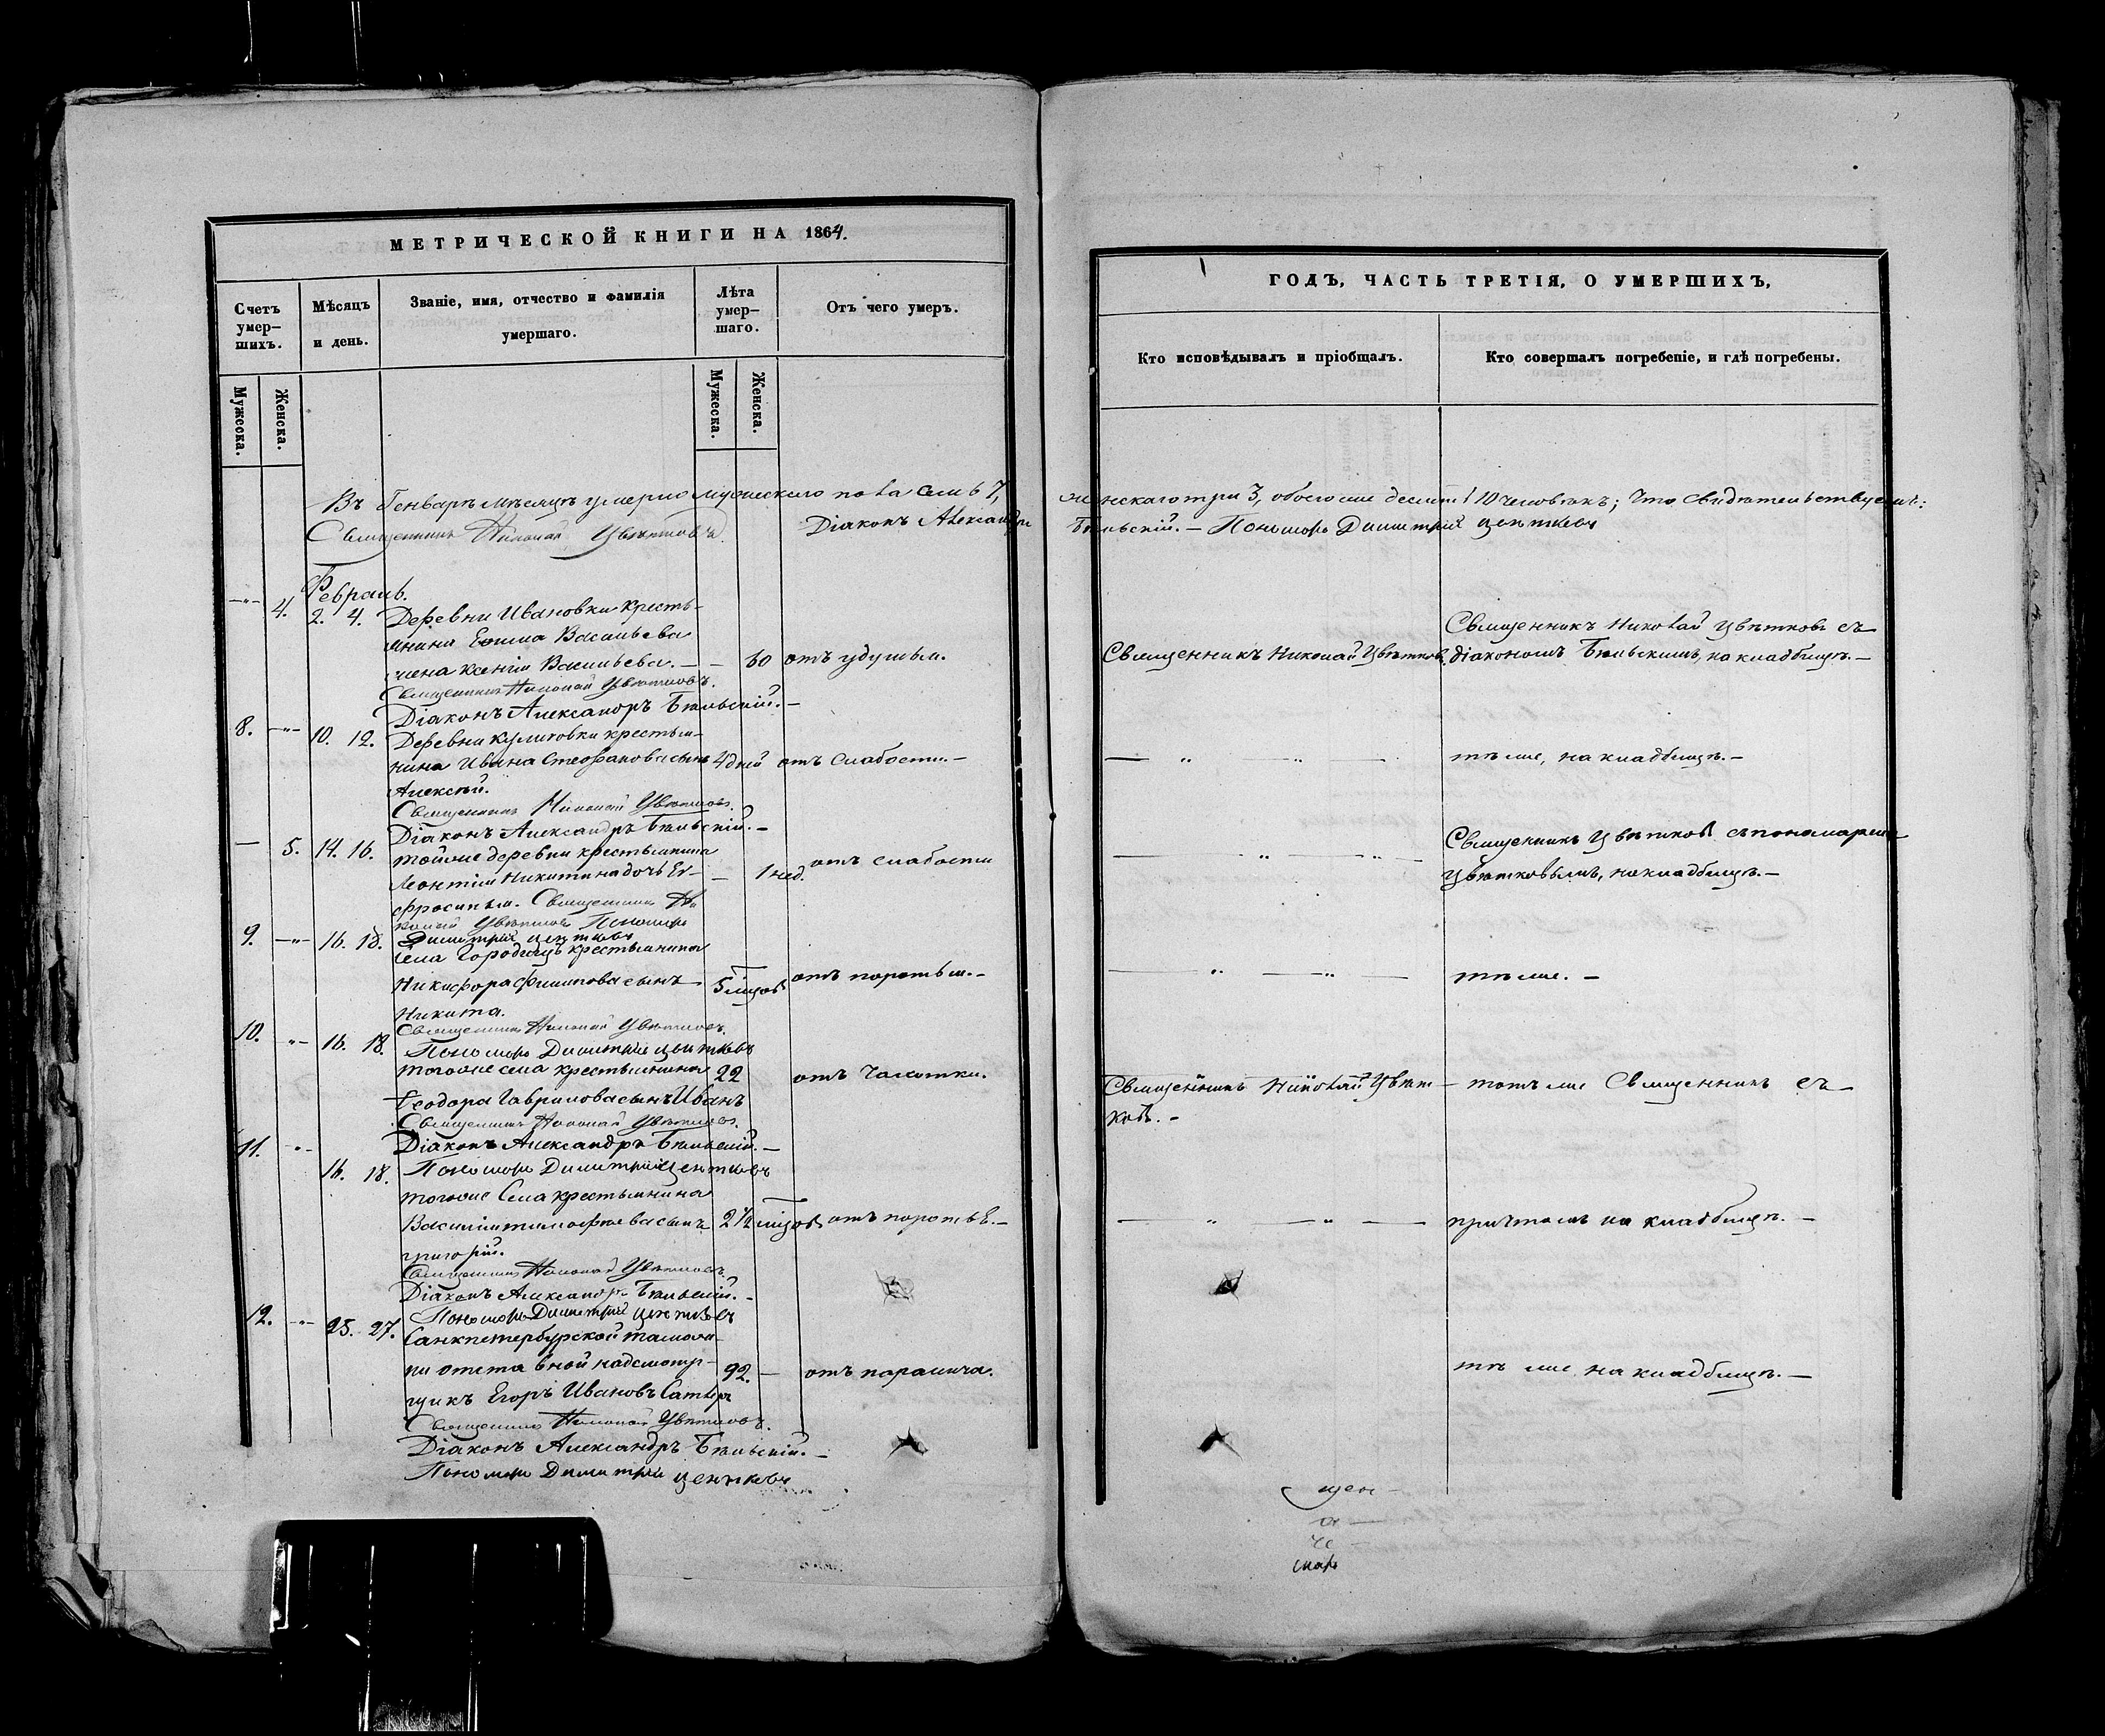 МЕТРИЧЕСКОЙ КНИГИ НА 1864.
Счетъ умер–шихъ.
Мѣсяцъ и день.
Званіе, имя, отчество и фамилія умершаго.
Лѣта умер–шаго.
Отъ чего умеръ.
Мужеска.
Женска.
Мужеска.
Женска.
Въ Генварѣ мѣсяцѣ умерло мужескаго пола семь 7,
Священникъ Николай Цвѣтковъ. Діаконъ Александръ
Февраль.
–"– 4. 2. 4. Деревни Ивановки кресть–
янина Еѳима Васильева
жена Ксенія Васильева. – – 60 отъ удушья.
Священникъ Николай Цвѣтковъ.
Діаконъ Александръ Бѣльскій. –
8. –"– 10. 12. Деревни Куликовки крестья–
нина Ивана Стефанова сынъ 4 дней отъ слабости. –
Алексѣй.
Священникъ Николай Цвѣтковъ.
Діаконъ Александръ Бѣльскій. –
— 5. 14. 16. тойже деревни крестьянина
Леонтія Никитина дочь Ев– – 1 нед. отъ слабости
фросинья. Священникъ Ни
колай Цвѣтковъ Пономарь
Димитрій Цвѣтковъ
9. –"– 16. 18. Села Городецъ крестьянина
Никифора Филипова сынъ 5 мѣцовъ отъ поротья. –
Никита.
Священникъ Николай Цвѣтковъ.
Пономарь Димитрій Цвѣтковъ
10. –"– 16. 18. тогоже села крестьянина 22 отъ чахотки.
Ѳеодора Гаврилова сынъ Иванъ
Священникъ Николай Цвѣтковъ.
Діаконъ Александръ Бѣльскій. –
Пономарь Димитрій Цвѣтковъ
11. –"– 16. 18. тогоже Села крестьянина
Василія тимофѣева сынъ 2½ мѣцовъ отъ поротьЕ. –
григорій.
Священникъ Николай Цвѣтковъ.
Діаконъ Александръ Бѣльскій. –
Пономарь Димитрій Цвѣтковъ
12. –"– 25. 27. Санкпетербурской таможи–
ни отставной надсмотр–
щикъ Егоръ Ивановъ 92. – отъ паралича.
Священникъ Николай Цвѣтковъ.
Діаконъ Александръ Бѣльскій. –
Пономарь Димитрій Цвѣтковъ
ГОДЪ, ЧАСТЬ ТРЕТІЯ, О УМЕРШИХЪ,
Кто исповѣдывалъ и пріобщалъ.
Кто совершалъ погребеніе, и гдѣ погребены.
женскаго три 3, обоего же десять 10 человѣкъ; что свидѣтельствуемъ:
Бѣльскій. – Пономарь Димитрій Цвѣтковъ
Священникъ Николай Цвѣтковъ съ
Священникъ Николай Цвѣтковъ. діакономъ Бѣльскимъ, на кладбищѣ. –
— " — " — тѣже, на кладбищѣ. –
Священникъ Цвѣтковъ съ пономаремъ
— " — " Цвѣтковымъ, на кладбищѣ. –
— " — " — тѣже. –
Священникъ Николай Цвѣт– тотъ же Священникъ съ
ковъ. –
— " — " — причтомъ на кладбищѣ. –
тѣ же на кладбищѣ. –
щен